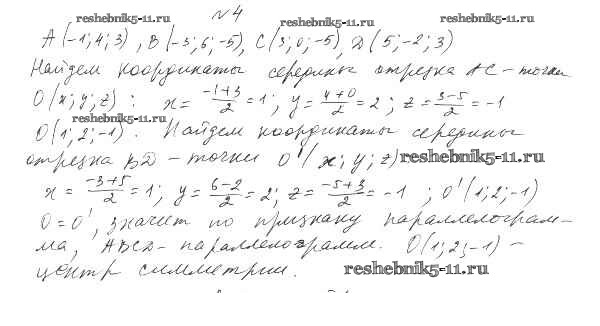 №4
reshebnik5-11.ru reshebnik5-11.ru reshebnik5-11.ru
A(-1; 4; 3), B(-3; 6; -5), C(3; 0; -5), D(5; -2; 3)
Найдем координаты середины отрезка AC - точки
O(x; y; z): x = \frac{-1+3}{2} = 1; y = \frac{4+0}{2} = 2; z = \frac{3-5}{2} = -1
reshebnik5-11.ru
O(1; 2; -1). Найдем координаты середины
отрезка BD - точки O'(x; y; z) reshebnik5-11.ru
x = \frac{-3+5}{2} = 1; y = \frac{6-2}{2} = 2; z = \frac{-5+3}{2} = -1; O'(1; 2; -1)
O = O', значит по признаку параллелограм-
ма, ABCD - параллелограмм. O(1; 2; -1) -
центр симметрии. reshebnik5-11.ru